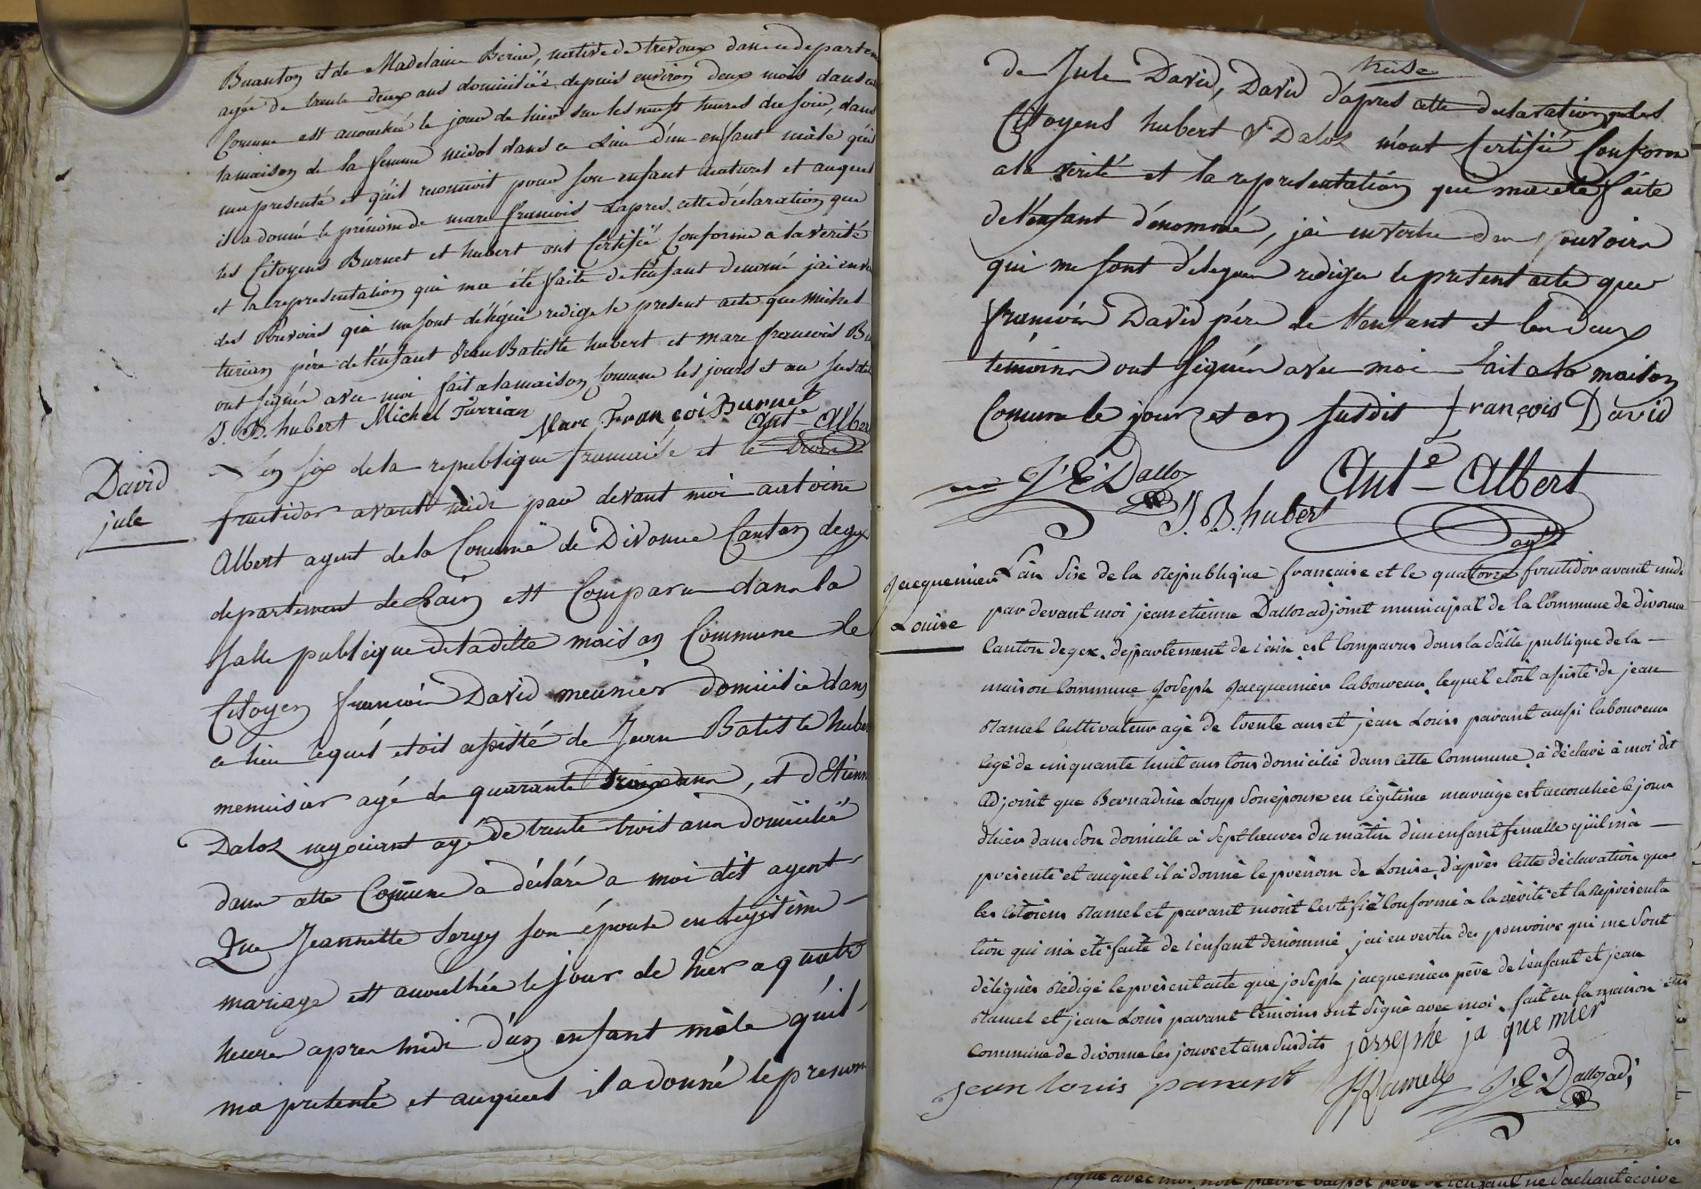 Buanton et de Madelaine Berier, native de trevoux dans ce departem
agée de trente deux ans domiciliée depuis environ deux mois dans ce
Comune est accouchée le jour de hier sur les neuf heures du soir, dans
la maison de la femme nicod dans ce Lieu d'un enfant male qu'il
ma presenté et qu'il reconnoit pour son enfant naturel et auquel
il a donné le prénom de marc françois Dapres cette déclaration que
les Citoyens Burnet et hubert ont Certifié Conforme a la verité
et la representation qui ma été faite de l'enfant denomé jai en ve
des Pouvoirs qui me sont délégué redigé le present acte que michel
turrian père de l'enfant Jean Batiste hubert et marc françois Bu
ont signés avec moi fait a la maison Comune les jours et an susdit
J. B. hubert Michel Turrian Marc François Burnet
Ant.e Alber
David
jule
L'an six de la republique francaise et le treize
fructidor avant midi par devant moi antoine
Albert agent de la Comune de Divonne Canton de gex
departement de Lain est Comparu dans la
salle publique de ladite maison Commune le
Citoyen françois David meunier domicilié dans
ce lieu lequel etoit assisté de Jean Batiste huber
menuisier agé de quarante trois ans, et d'Etienn
Daloz negociant agé de trente trois ans domicilié
dans cette Comune a déclaré a moi dit agent
Que Jeannette Sergy son épouse en legitime
mariage est accouchée le jour de hier a quatre
heures apres midi d'un enfant mâle qu'il
ma presenté et auquel il a donné le prenom
de Jule David, David d'apres cette declaration que les
Citoyens hubert & Daloz m'ont Certifié Conform
a la verité et la representation qui ma été faite
de l'enfant dénommé, jai en vertu des pouvoirs
qui me sont délegués redigé le present acte que
françois David père de l'enfant et les deux
témoins ont signés avec moi fait a la maison
Comune le jour et an susdit François David
J. E. Dalloz
Ant.e Albert
J. B. hubert
agt
Jacquemier
Louise
L'an Sixe de la République française et le quatorze fructidor avant midi
par devant moi jean etienne Dalloz adjoint municipal de la Commune de divonne
Canton de gex. departement de l'ain est Comparus dans la Salle publique de la
maison Commune Joseph Jacquemier laboureur lequel etoit assisté de jean
Ramel Cultivateur agé de trente ans et jean Louis pavant aussi laboureur
agé de cinquante huit ans tous domicilié dans cette Commune à déclaré à moi dit
adjoint que Bernadine Loup Son épouse en légitime mariage est accouchée le jour
d'hier dans Son domicile à Sept heures du matin d'un enfant femelle qu'il m'a
présenté et auquel il à donné le prénom de Louise, d'après Cette déclaration que
les citoiens Ramel et pavant m'ont Certifié Conforme à la vérité et la Représenta
tion qui m'a été faite de l'enfant dénommé, j'ai en vertu des pouvoirs qui me Sont
délégués Rédigé le présent acte que joseph jacquemier père de l'enfant et jean
Ramel et jean Louis pavant témoins ont Signé avec moi. fait en la maison
Commune de divonne les jour et an Susdits josephe ja que mier
jean louis pavant JRamel J. E. Dalloz adj